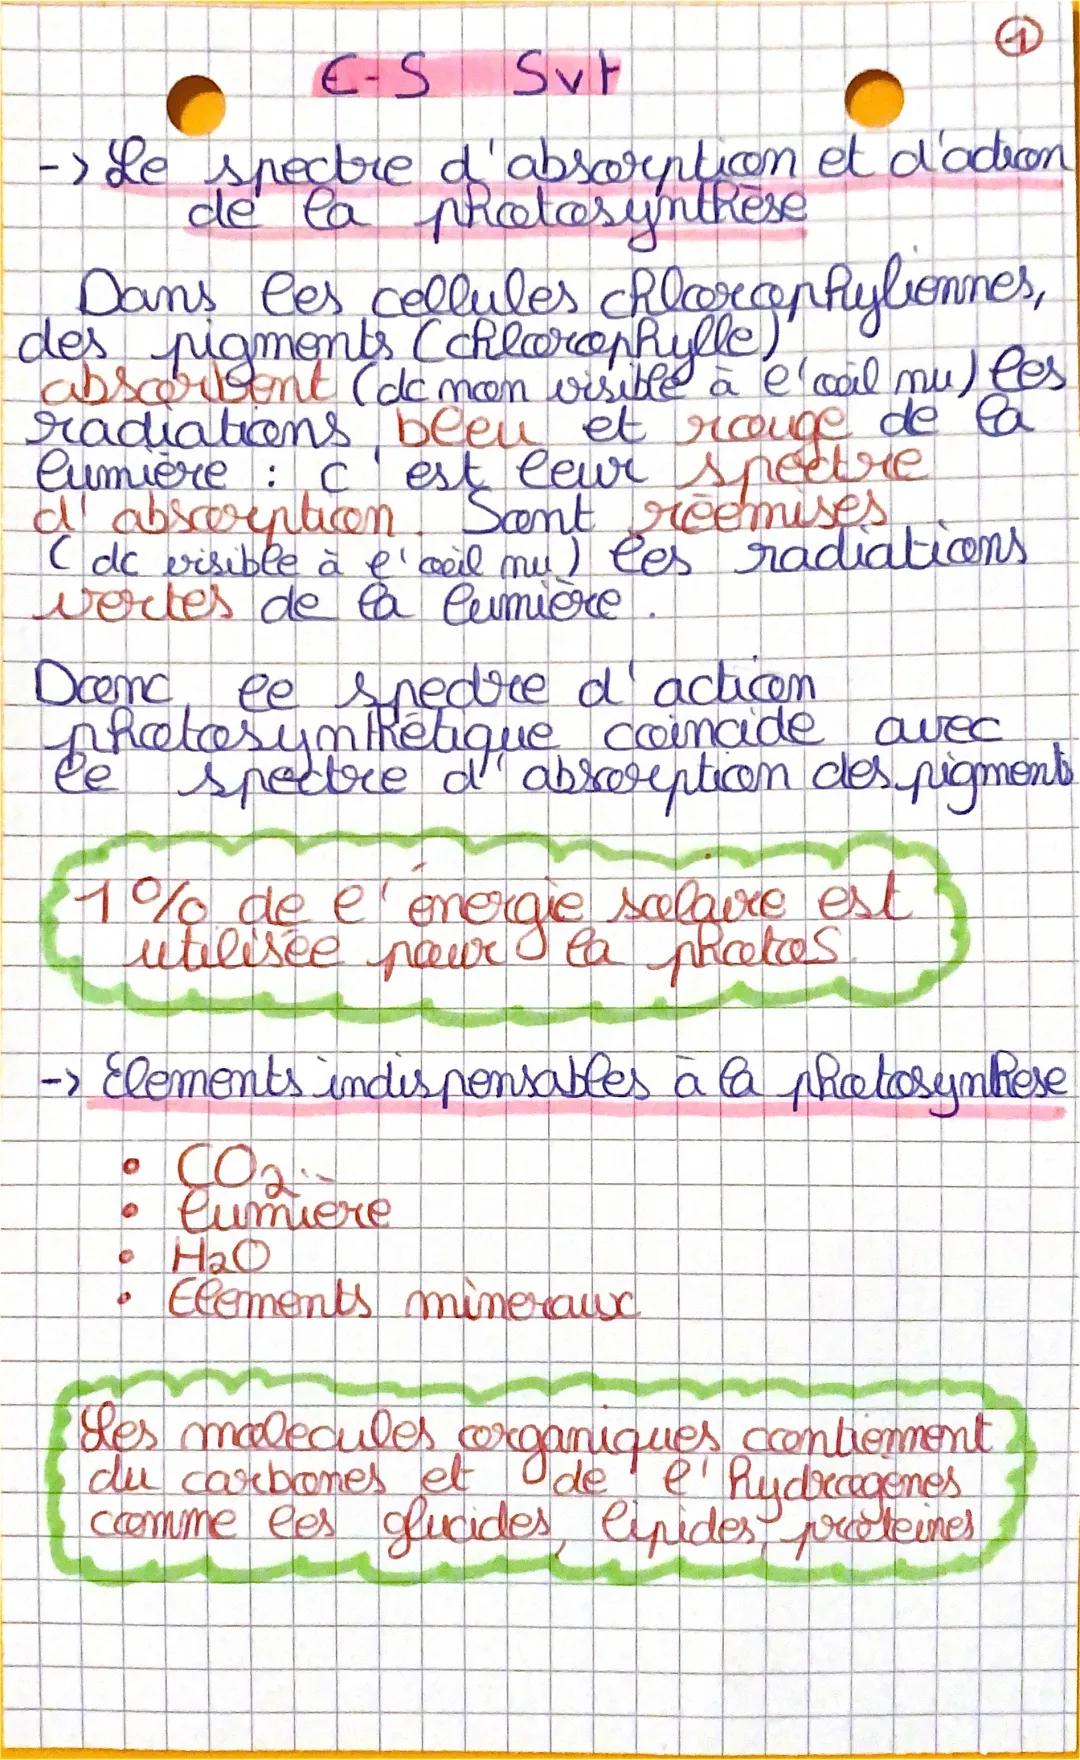 1
E-S Svt
-> Le spectre d'absorption et d'action
de la photosynthèse
Dans les cellules chlorophyliennes,
des pigments (chlorophylle)
absorbent (dc non visible à l'oeil nu) les
radiations bleu et rouge de la
lumière : c'est leur spectre
d'absorption. Sont réemises
(dc visible à l'oeil nu) les radiations
vertes de la lumière.
Donc, le spectre d'action
photosynthétique coincide avec
le spectre d'absorption des pigments
1% de l'énergie solaire est
utilisée pour la photoS.
-> Elements indispensables à la photosynthese
• CO2
• lumière
• H2O
• Elements mineraux
Les molecules organiques contiennent
du carbones et de l'hydrogènes
comme les glucides, lipides, protéines